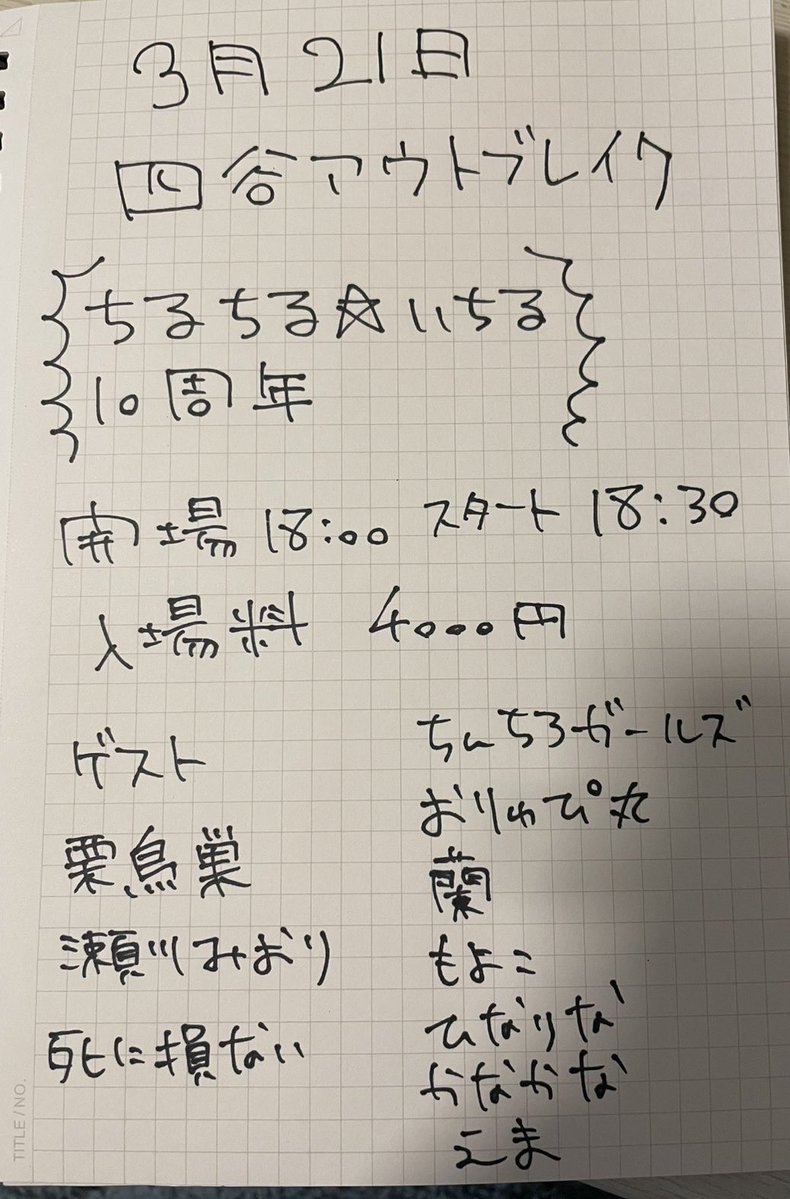 3月21日
四谷アウトブレイク
ちるちる☆いちる
10周年
開場 18:00 スタート 18:30
入場料 4000円
ゲスト
栗鳥巣
瀬川みおり
死に損ない
ちんちろガールズ
おりゅぴ丸
蘭
もよこ
ひなりな
かなかな
こま
TITLE / NO.